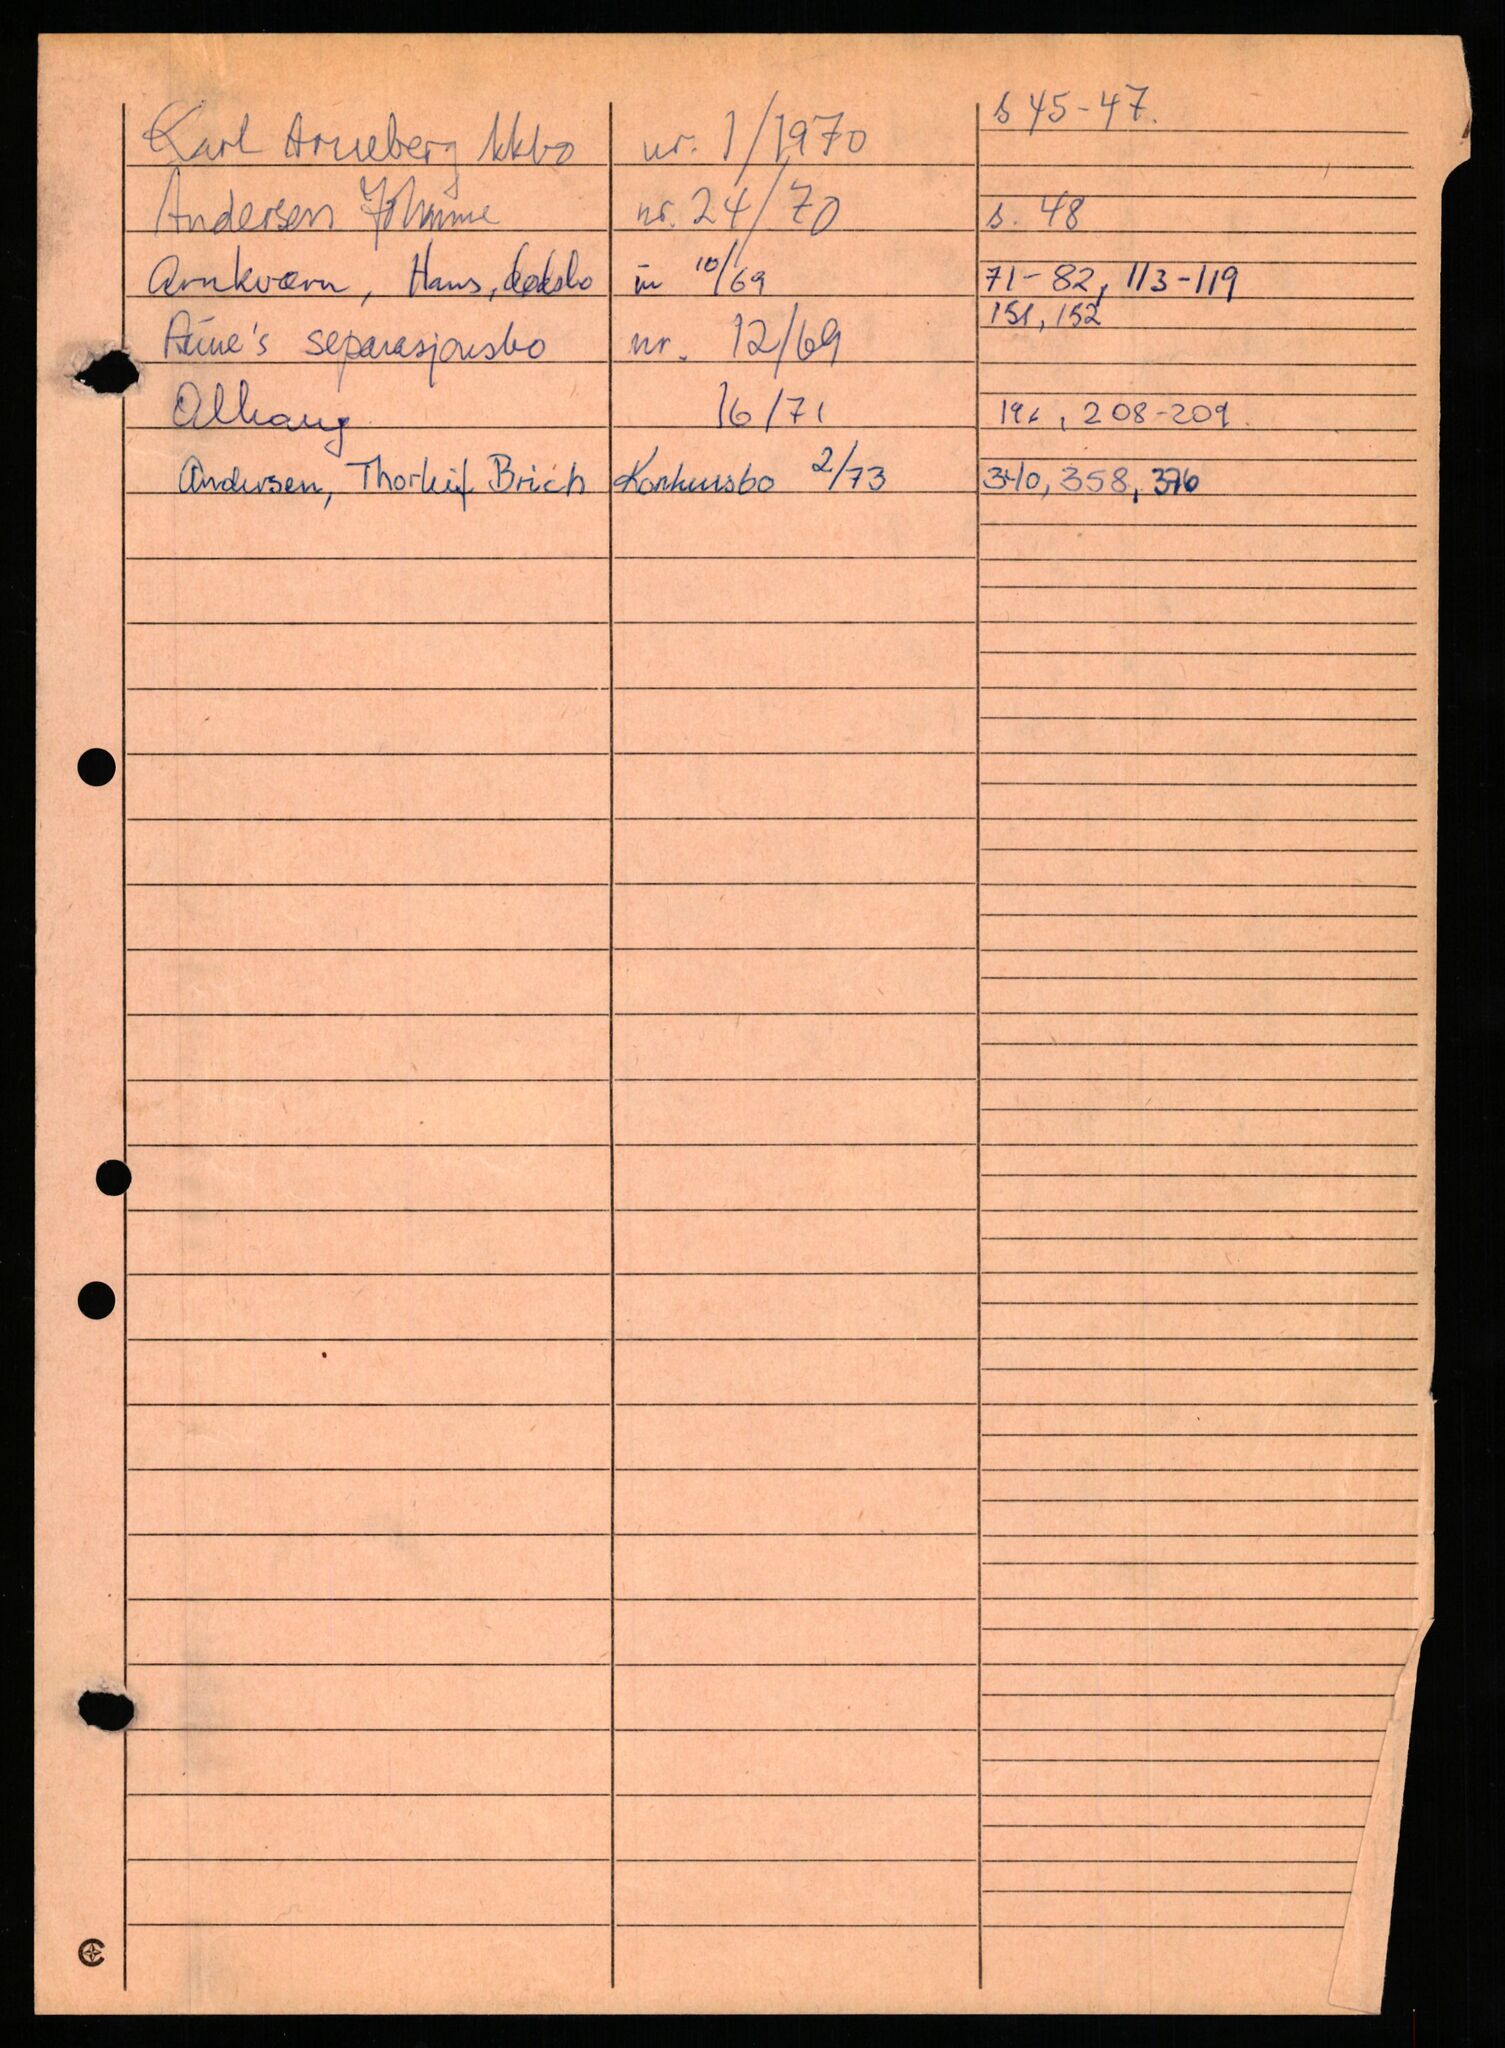 Karl Arneberg kkbo nr. 1/1970 s 45-47.
Andersen Johanne nr. 24/70 s. 48
Arnkværn, Hans, nr 10/69 71-82, 113-119
151, 152
separasjonsbo nr. 12/69
Alhaug 16/71 196, 208-209.
Andersen, Thorleif Brich Konkursbo 2/73 340, 358, 376